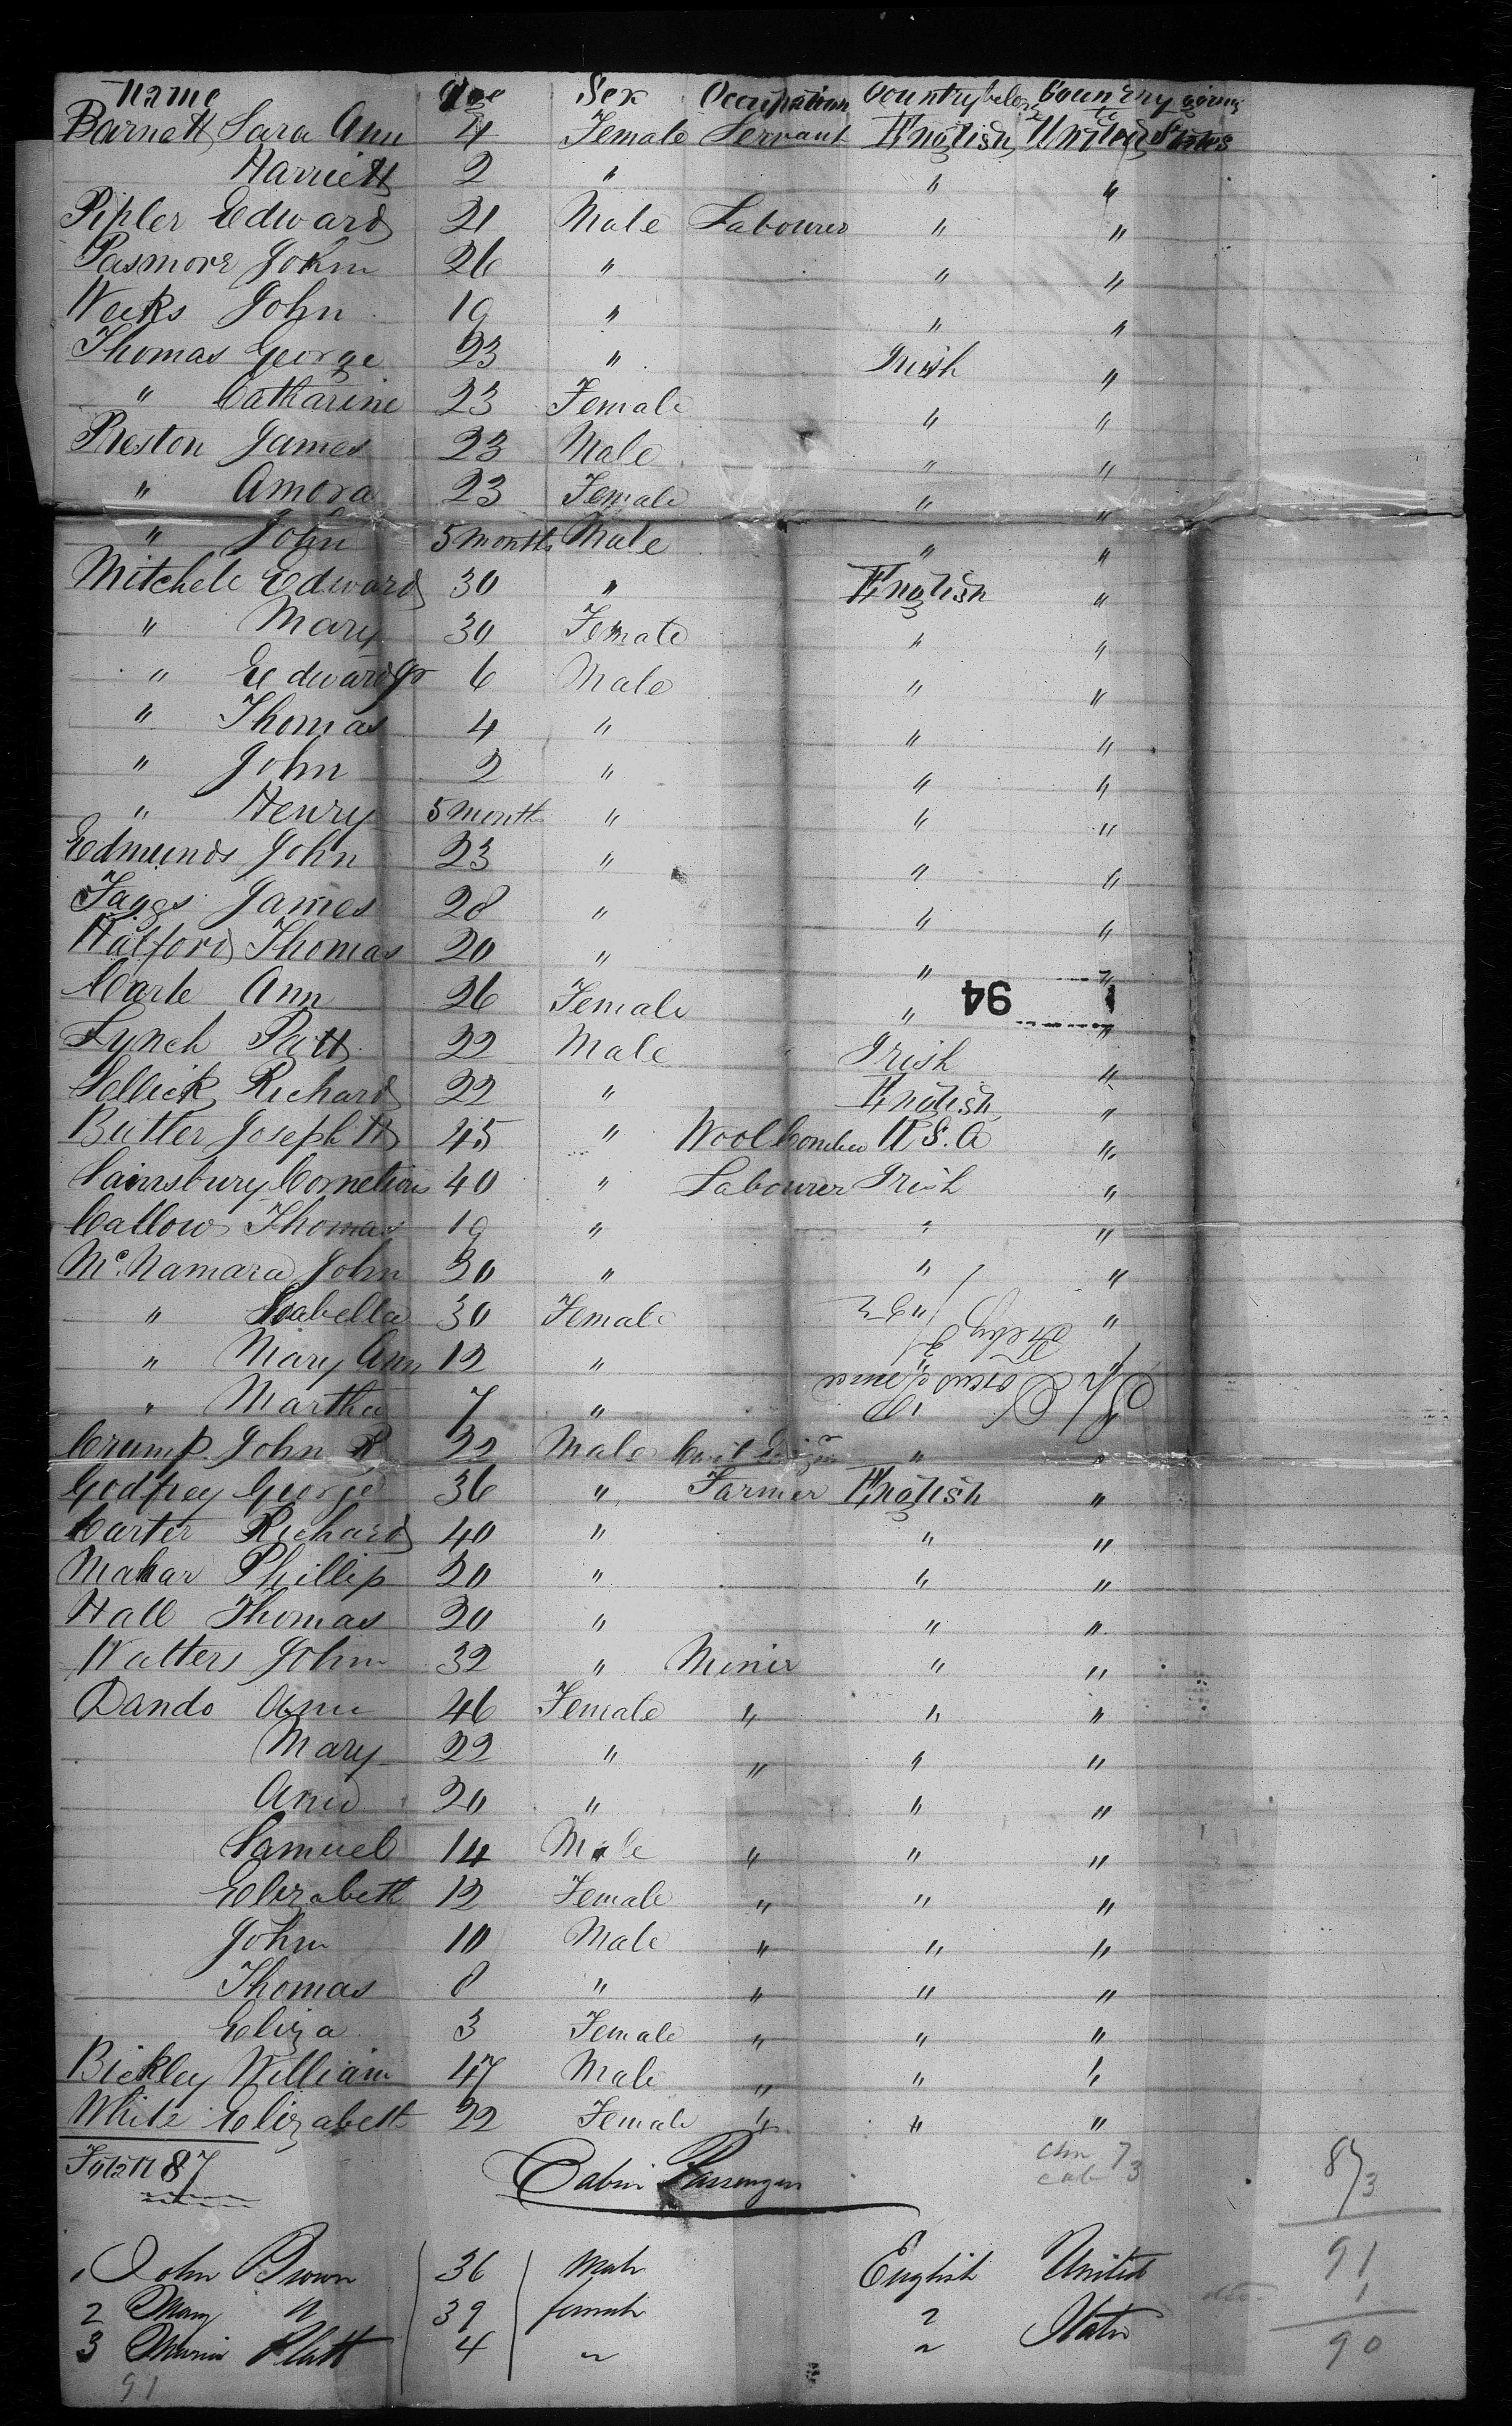 Name Age Sex Occupation Country belong Country going to
Barnett Sara Ann 4 Female Servant English United States
Harriett 2 " " "
Pipler Edward 21 Male Labourer " "
Pasmore John 26 " " "
Weeks John 19 " " "
Thomas George 23 " Irish "
" Catharine 23 Female " "
Preston James 23 Male " "
" Amora 23 Female " "
" John 5 months Male " "
Mitchele Edward 30 " English "
" Mary 30 Female " "
" Edward Jr 6 Male " "
" Thomas 4 " " "
" John 2 " " "
" Henry 5 month " " "
Edmunds John 23 " " "
Faggs James 28 " " "
Halford Thomas 20 " " "
Carle Ann 26 Female " "
94
Lynch Patt 22 Male Irish "
Sellick Richard 22 " English "
Butler Joseph H 45 " Wool Comber U.S.A "
Sainsbury Cornelious 40 " Labourer Irish "
Callow Thomas 19 " " "
Mc. Namara John 30 " " "
" Isabella 30 Female " "
" Mary Ann 12 " " "
" Martha 7 " "
Crump John R 22 Male Civil " "
Godfrey George 36 " Farmer English "
Carter Richard 40 " " "
Mahar Phillip 20 " " "
Hall Thomas 20 " " "
Walters John 32 " Minir " "
Dando Ann 46 Female " " "
Mary 22 " " " "
Ann 20 " " "
Samuel 14 Male " " "
Elizabeth 12 Female " " "
John 10 Male " " "
Thomas 8 " " " "
Eliza 3 Female " " "
Bickley William 47 Male " " "
White Elizabeth 22 Female " " "
Total 87
Cabin Passengers
87
3
91
1
90
1 John Brown 36 Male English United
2 Mary " 39 female " States
3 Maria Platt 4 " "
91